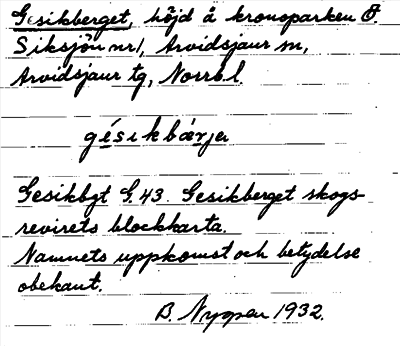 Gesikberget, höjd å kronoparken Ö.
Siksjön nr 1, Arvidsjaur sn,
Arvidsjaur tg, Norrb l.
gésikbærjɐ
Gesikbgt G. 43. Gesikberget skogs-
revirets blockkarta.
Namnets uppkomst och betydelse
obekant.
B. Nygren 1932.